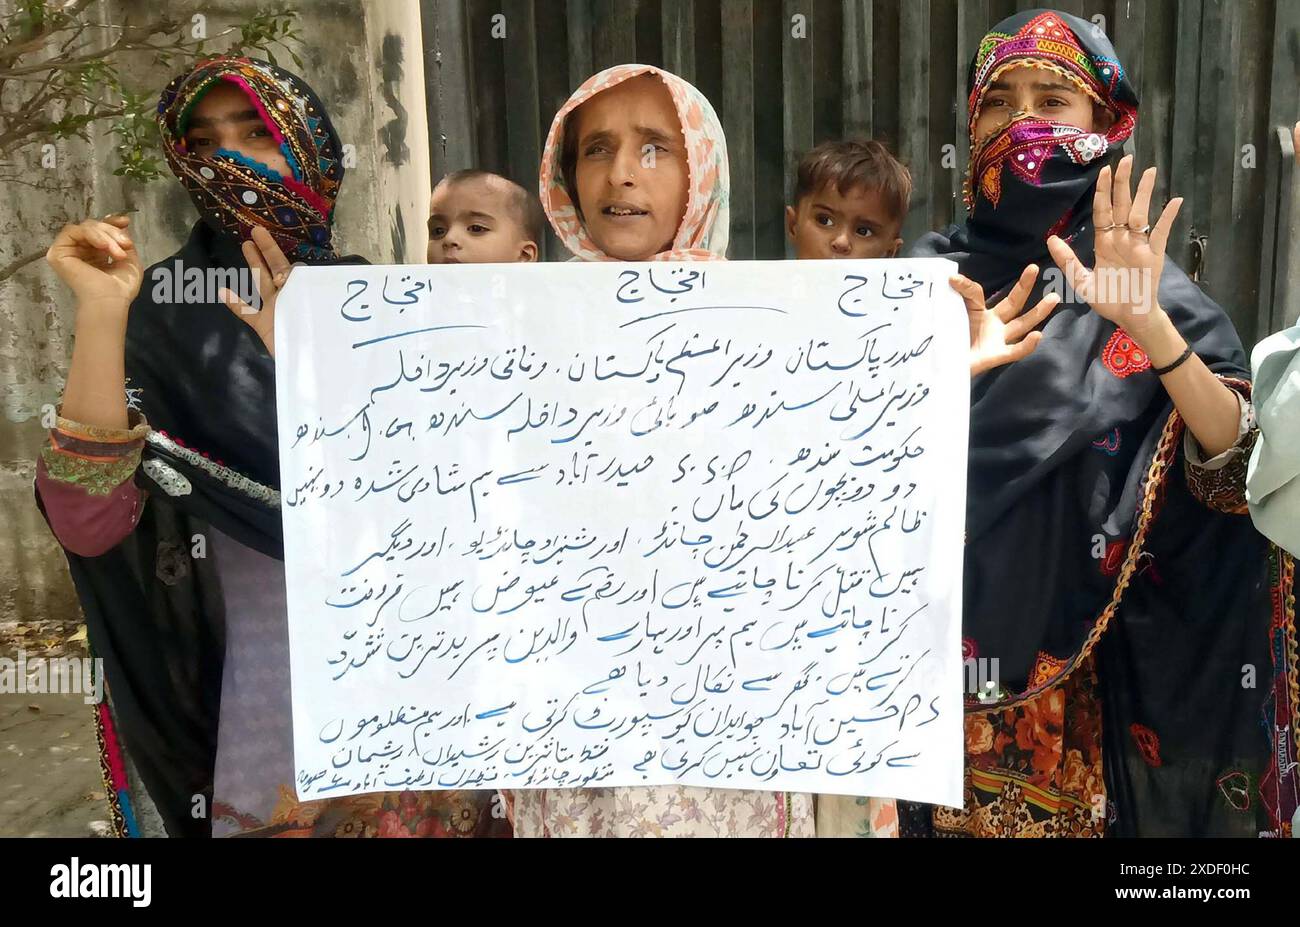 احتجاج احتجاج احتجاج
صدر پاکستان وزیراعظم پاکستان، وفاقی وزیر داخلہ
وزیراعلیٰ سندھ صوبائی وزیر داخلہ سندھ سندھ
حکومت سندھ، حیدرآباد سے ہم شادی شدہ دو بہنیں
دو دو بچوں کی ماں
ظالم شوہر عبدالرحمن چانڈیو، اور شہزاد چانڈیو، اور دیگر
ہمیں قتل کرنا چاہتے ہیں اور رقم کے عیوض ہمیں فروخت
کرنا چاہتے ہیں ہم پر اور ہمارے والدین پر بدترین تشدد
کرتے ہیں، گھر سے نکال دیا ہے
PS حسین آباد جوابدان کو سپورٹ کرتی ہے اور ہم مظلوموں
سے کوئی تعاون نہیں کر رہی ہے
فقط متاثرین رشیداں، ریشماں
منظور چانڈیو، لطیف آباد
alamy
alamy
Image ID: 2XDF0HC
www.alamy.com